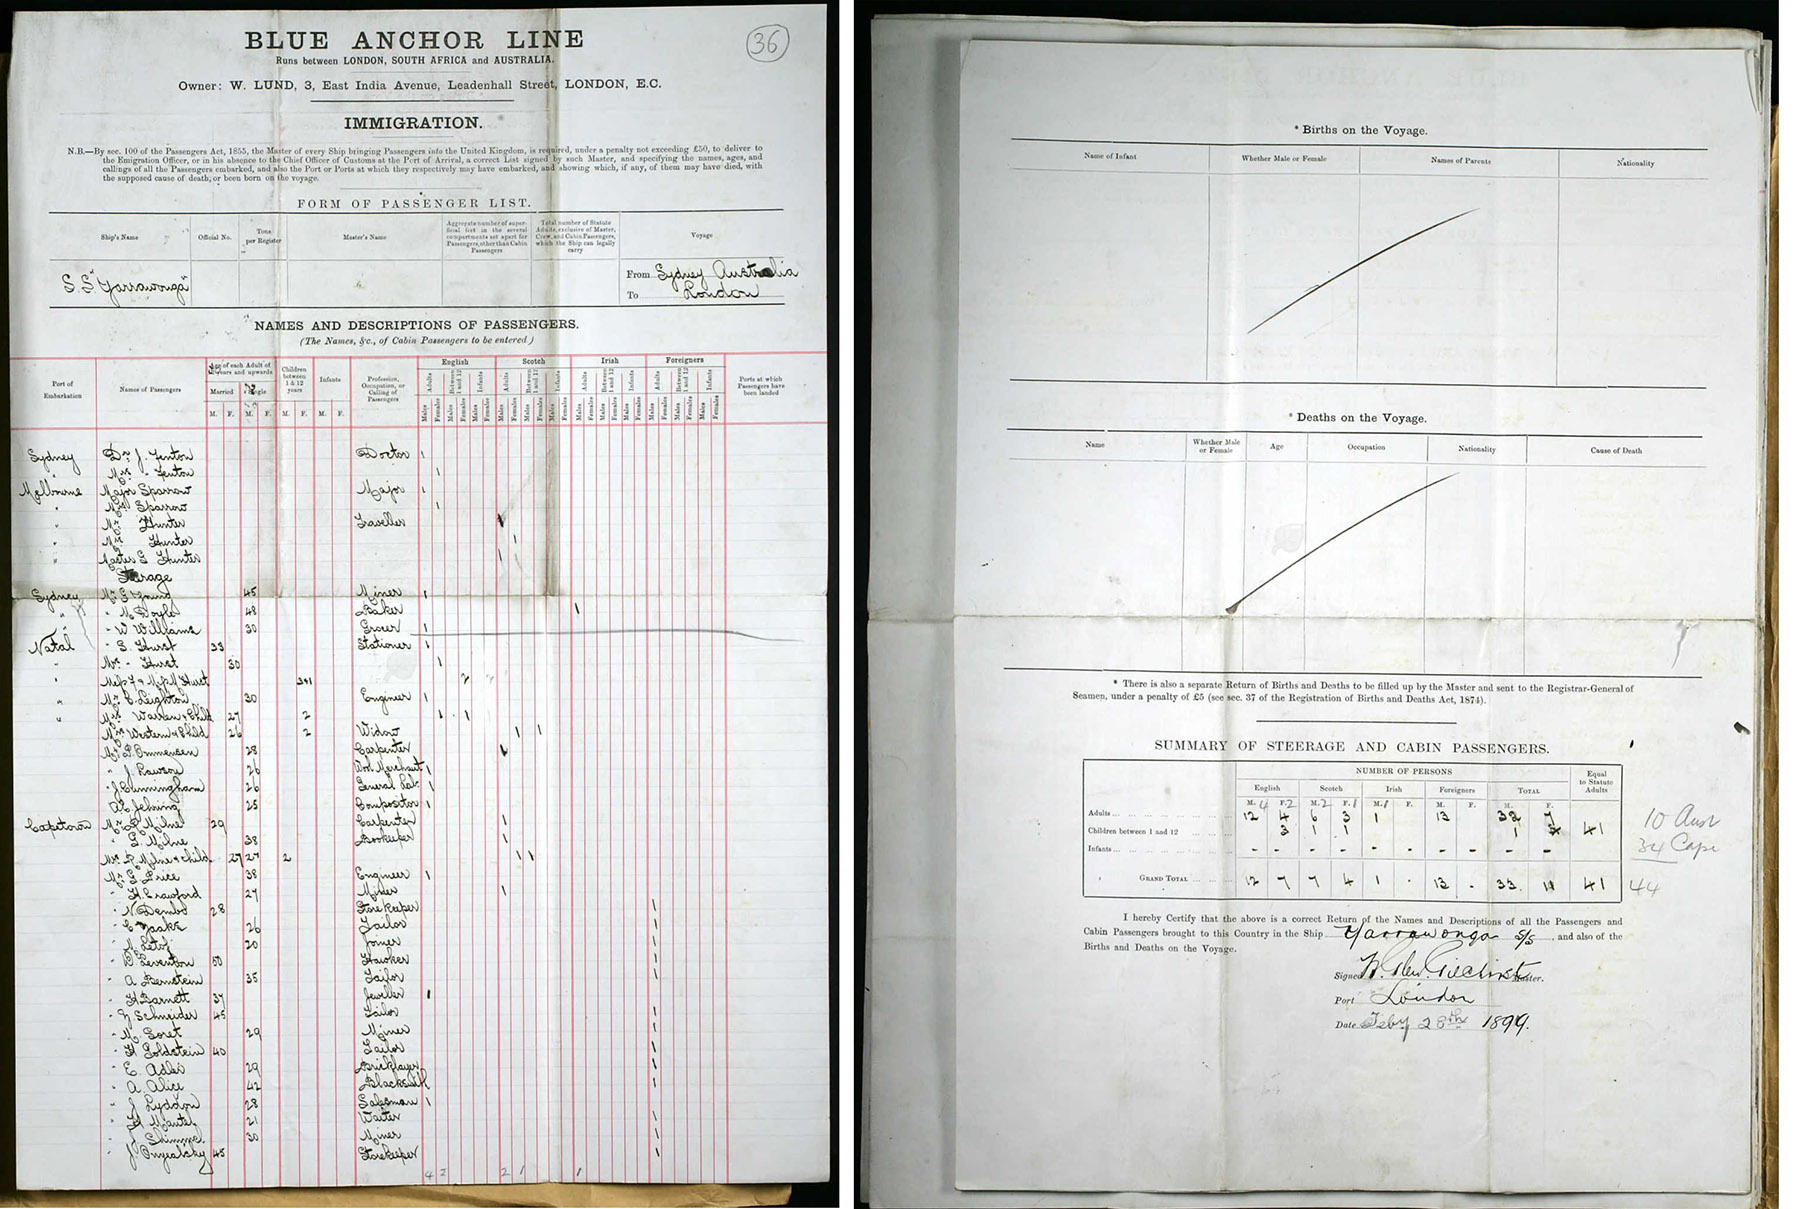 BLUE ANCHOR LINE
36
Runs between LONDON, SOUTH AFRICA and AUSTRALIA.
Owner: W. LUND, 3, East India Avenue, Leadenhall Street, LONDON, E.C.
IMMIGRATION.
N.B.—By sec. 100 of the Passengers Act, 1855, the Master of every Ship bringing Passengers into the United Kingdom, is required, under a penalty not exceeding £50, to deliver to
the Emigration Officer, or in his absence to the Chief Officer of Customs at the Port of Arrival, a correct List signed by such Master, and specifying the names, ages, and
callings of all the Passengers embarked, and also the Port or Ports at which they respectively may have embarked, and showing which, if any, of them may have died, with
the supposed cause of death, or been born on the voyage.
FORM OF PASSENGER LIST.
Ship's Name Official No. Tons per Register Master's Name Aggregate number of superficial feet in the several compartments set apart for Passengers, other than Cabin Passengers Total number of Statute Adults, exclusive of Master, Crew, and Cabin Passengers, which the Ship can legally carry Voyage
S.S "Yarrawonga" From Sydney Australia
To London
NAMES AND DESCRIPTIONS OF PASSENGERS.
(The Names, &c., of Cabin Passengers to be entered)
English Scotch Irish Foreigners
Port of Embarkation Names of Passengers Age of each Adult of years and upwards Children between 1 & 12 years Infants Profession, Occupation, or Calling of Passengers Adults Between 1 and 12 Infants Adults Between 1 and 12 Infants Adults Between 1 and 12 Infants Adults Between 1 and 12 Infants Ports at which Passengers have been landed
Married Single
M. F. M. F. M. F. M. F. Males Females Males Females Males Females Males Females Males Females Males Females Males Females Males Females Males Females Males Females Males Females Males Females
Sydney Dr J. Fenton Doctor 1
" Mrs - Fenton 1
Melbourne Major Sparrow Major 1
" Mrs Sparrow 1
" Mr Hunter Traveller 1
" Mrs Hunter 1
" Master G Hunter 1
Steerage
Sydney Mr G Young 45 Miner 1
" - M Doyle 48 Baker 1
" - W Williams 30 Grocer 1
Natal - S. Hurst 33 Stationer 1
" Mrs - Hurst 30 1
" Hurst 3+1 2
" Mr C. Leighton 30 Engineer 1
" Mrs Warren & Child 27 2 1 1
Mrs Western & Child 26 2 Widow 1 1
Mr P. Ommensen 28 Carpenter
" J. Rawson 26 Wool Merchant 1
- J Cunningham 26 General Lab. 1
25 Compositor 1
Capetown Mr Milne 29 Carpenter 1
- G. Milne 38 Bookeeper 1
Mrs Milne & child 27 27 2 1 1
Mr G Price 38 Engineer 1
- H. Crawford 27 Miner 1
- N. Dembo 28 Storekeeper 1
- C 26 Tailor 1
- M 20 Joiner 1
- B Leventon 50 Hawker 1
- A Bernstein 35 Tailor 1
- H Barnett 37 Jeweller 1
- Schneider 45 Tailor 1
- M. Soret 29 Miner 1
- H Goldstein 40 Tailor 1
- E. Adler 29 Bricklayer 1
- A Alice 42 Blacksmith 1
- J Lyddon 28 Salesman 1
- H Mantel 21 Waiter 1
- Shimmel 30 Miner 1
- J 45 Storekeeper 1
4 2 2 1 1
* Births on the Voyage.
Name of Infant Whether Male or Female Names of Parents Nationality
* Deaths on the Voyage.
Name Whether Male or Female Age Occupation Nationality Cause of Death
* There is also a separate Return of Births and Deaths to be filled up by the Master and sent to the Registrar-General of
Seamen, under a penalty of £5 (see sec. 37 of the Registration of Births and Deaths Act, 1874).
SUMMARY OF STEERAGE AND CABIN PASSENGERS.
NUMBER OF PERSONS Equal to Statute Adults
English Scotch Irish Foreigners TOTAL
M. 4 F. 2 M. 2 F. 1 M. 1 F. M. F. M. F.
Adults ... 12 4 6 3 1 13 32 7
Children between 1 and 12 ... 3 1 1 1 4 41
Infants ... - - - - - - - - - -
GRAND TOTAL ... 12 7 7 4 1 - 13 - 33 11 41
10 Aust
34 Cape
44
I hereby Certify that the above is a correct Return of the Names and Descriptions of all the Passengers and
Cabin Passengers brought to this Country in the Ship Yarrawonga S/S, and also of the
Births and Deaths on the Voyage.
Signed Gilchrist Master.
Port London
Date Feby 28th 1899.